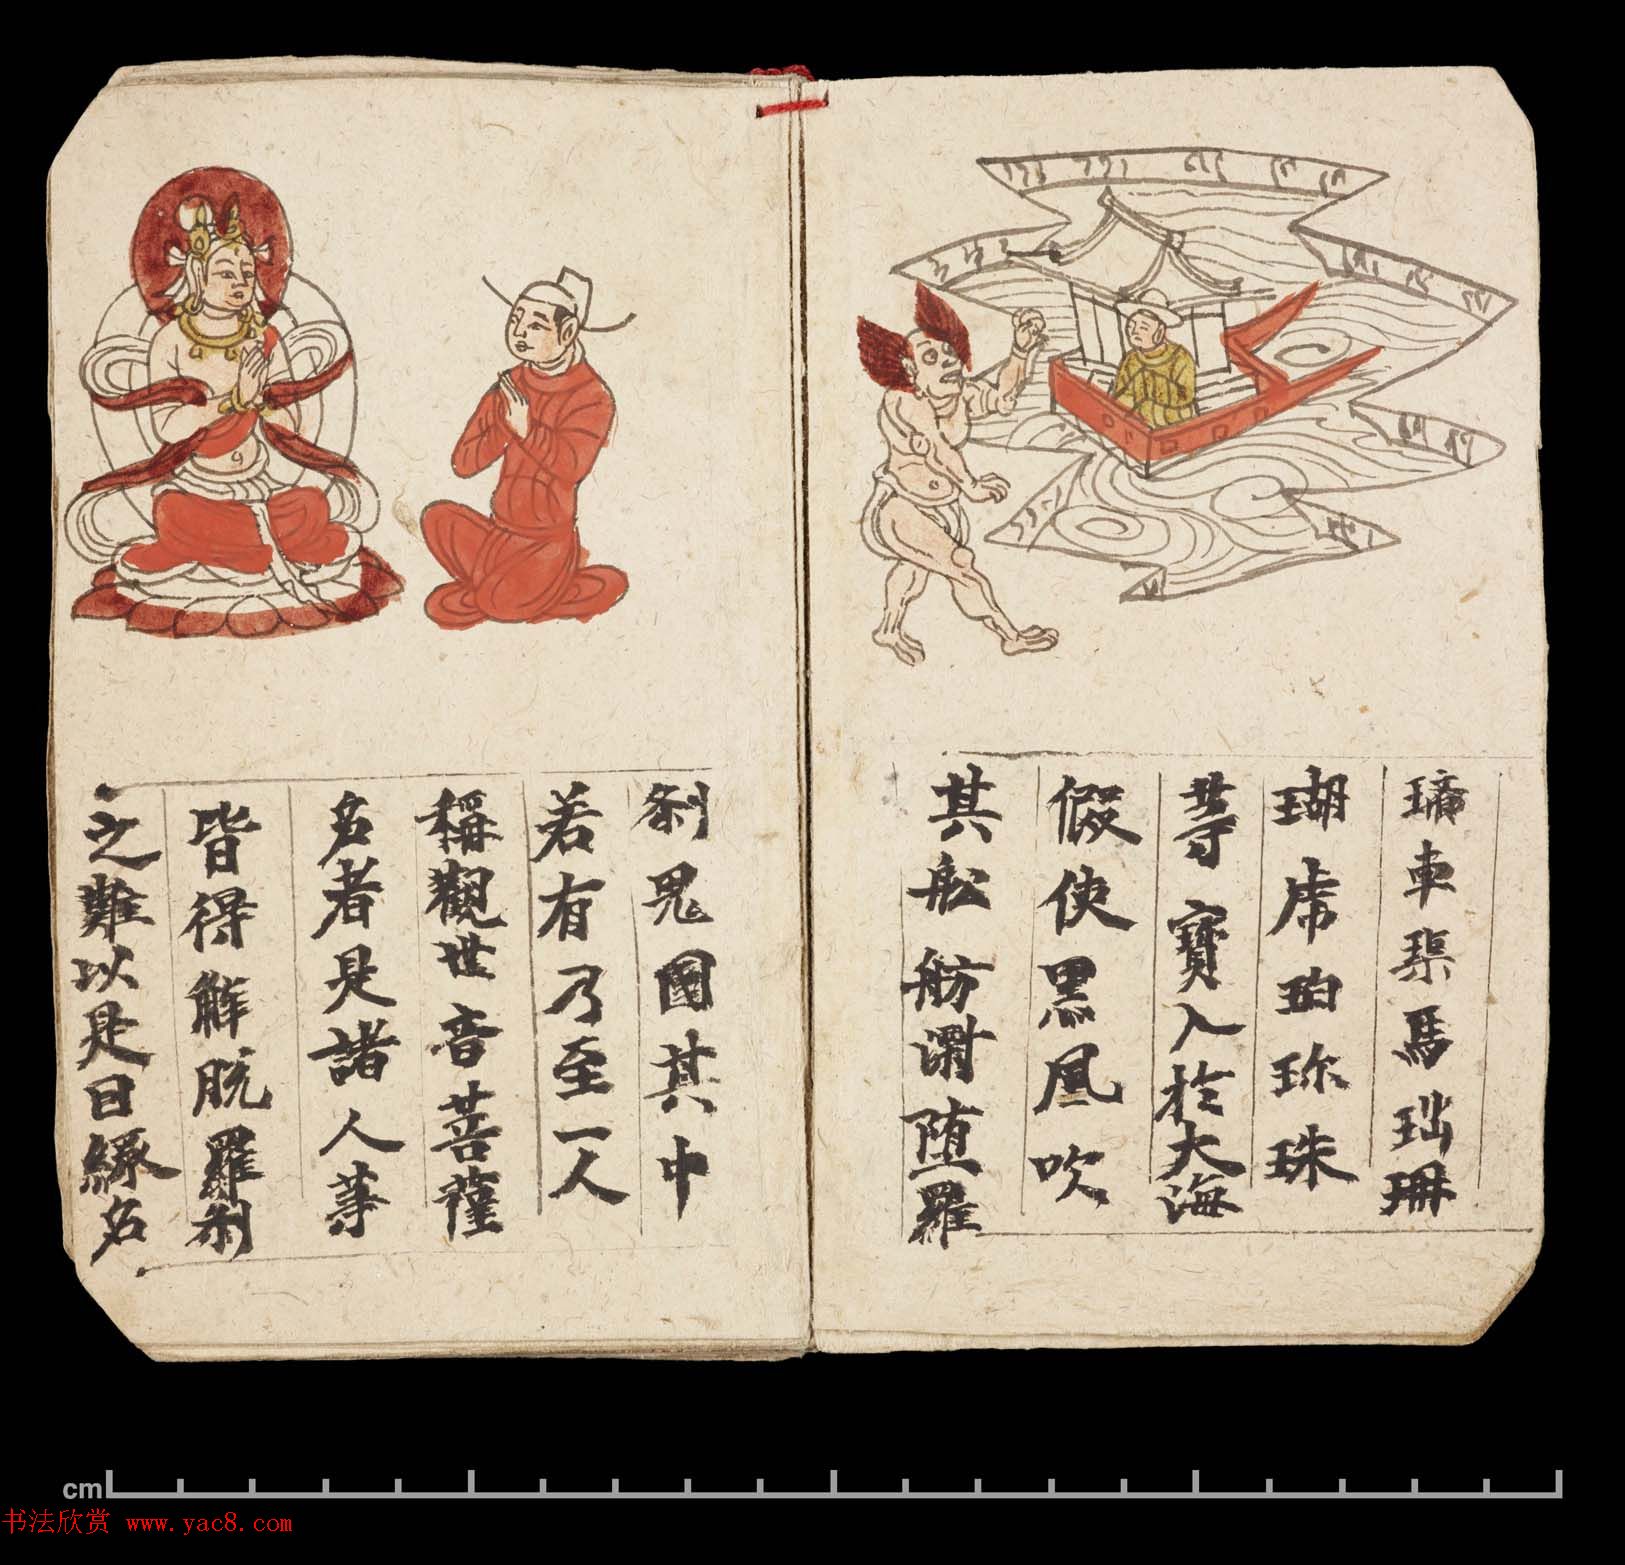 璃車渠馬瑙珊
瑚虎珀珎珠
等寶入於大海
假使黑風吹
其舩舫堕羅
刹鬼國其中
若有乃至一人
稱觀世音菩薩
名者是諸人等
皆得解脱羅刹
之難以是日緣名
cm
书法欣赏 www.yac8.com